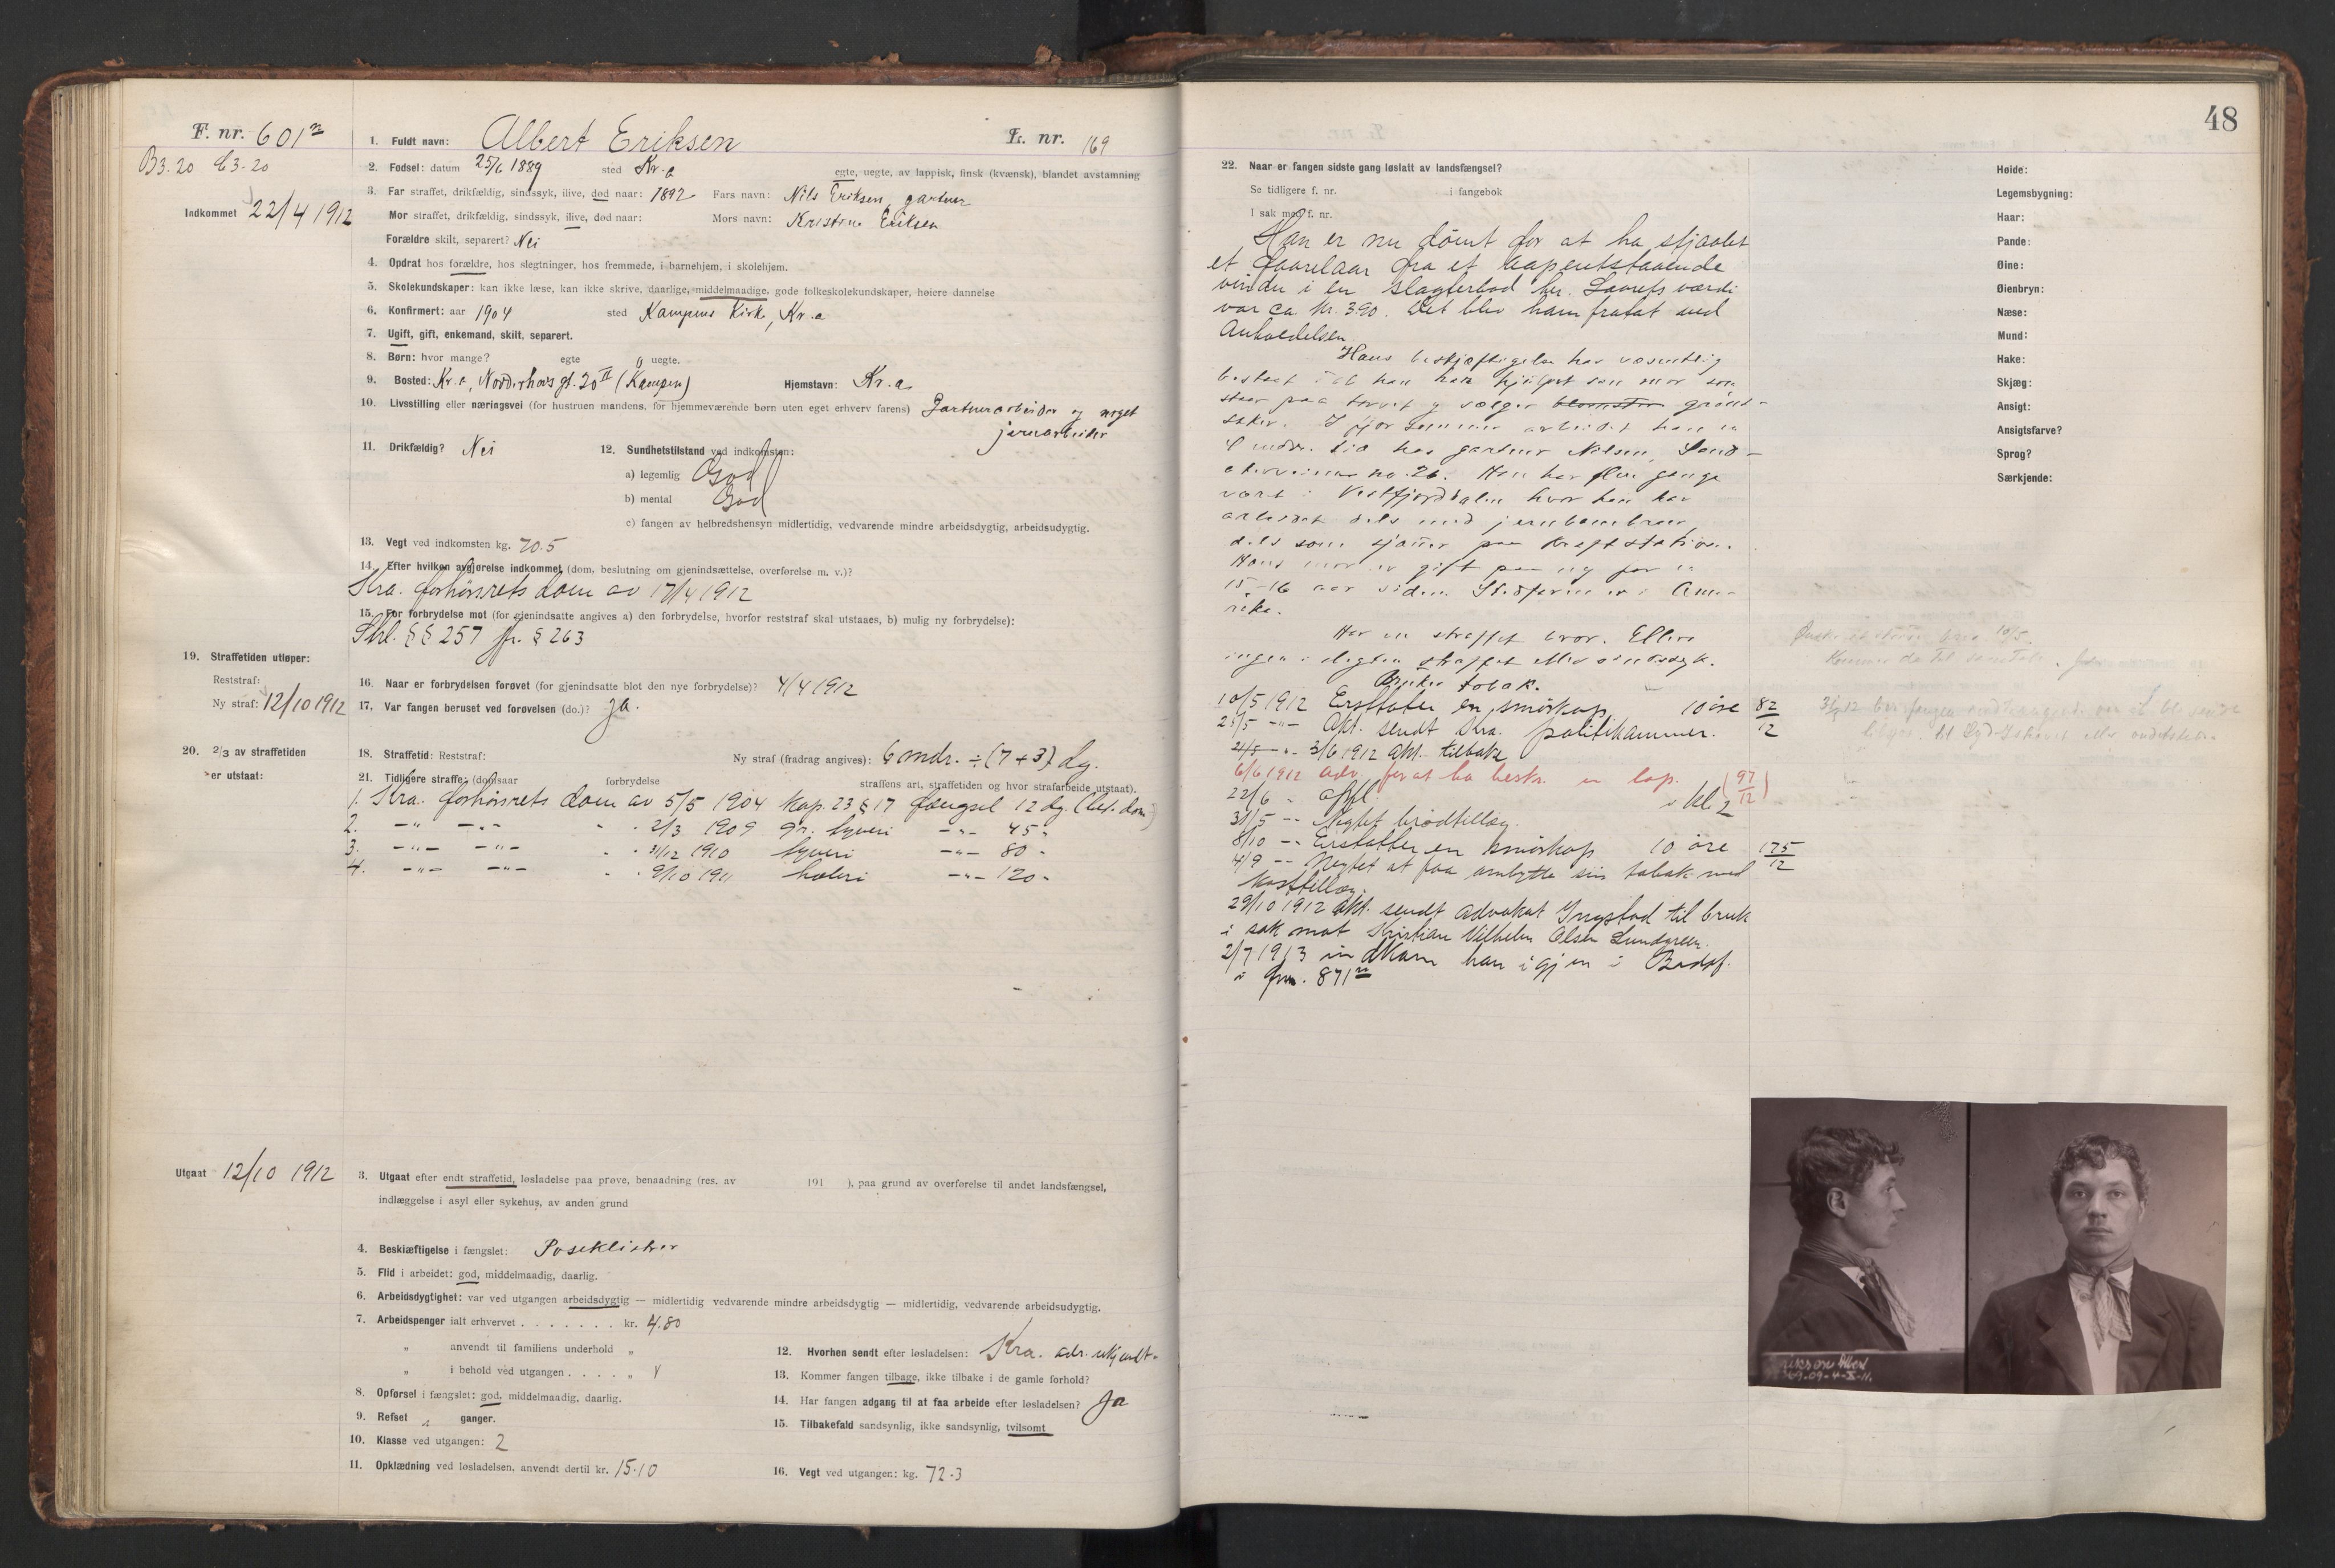 48
F. nr. 601n
B3.20 C3-20
Indkommet 22/4 1912
1. Fuldt navn: Albert Eriksen L. nr. 169
2. Fødsel: datum 25/6 1889 sted Kr.a egte, uegte, av lappisk, finsk (kvænsk), blandet avstamning
3. Far straffet, drikfældig, sindssyk, ilive, død naar: 1892 Fars navn: Nils Eriksen, gartner
Mor straffet, drikfældig, sindssyk, ilive, død naar: Mors navn: Kristine Eriksen
Forældre skilt, separert? Nei
4. Opdrat hos forældre, hos slegtninger, hos fremmede, i barnehjem, i skolehjem.
5. Skolekundskaper: kan ikke læse, kan ikke skrive, daarlige, middelmaadige, gode folkeskolekundskaper, høiere dannelse
6. Konfirmert: aar 1904 sted Kampens Kirke, Kr.a
7. Ugift, gift, enkemand, skilt, separert.
8. Børn: hvor mange? egte 0 uegte.
9. Bosted: Kr.a, Norderhovs gt. 20 II (Kampen) Hjemstavn: Kr.a.
10. Livsstilling eller næringsvei (for hustruen mandens, for hjemmeværende børn uten eget erhverv farens) Gartnerarbeider og noget
jernarbeider
11. Drikfældig? Nei 12. Sundhetstilstand ved indkomsten:
a) legemlig God
b) mental God
c) fangen av helbredshensyn midlertidig, vedvarende mindre arbeidsdygtig, arbeidsudygtig.
13. Vegt ved indkomsten kg. 70.5
14. Efter hvilken avgjørelse indkommet (dom, beslutning om gjenindsættelse, overførelse m. v.)?
Kra. forhørsrets dom av 17/4 1912
15. For forbrydelse mot (for gjenindsatte angives a) den forbrydelse, hvorfor reststraf skal utstaaes, b) mulig ny forbrydelse):
Strl. §§ 257 jfr. § 263
19. Straffetiden utløper:
Reststraf:
Ny straf: 12/10 1912
16. Naar er forbrydelsen forøvet (for gjenindsatte blot den nye forbrydelse)? 4/4 1912
17. Var fangen beruset ved forøvelsen (do.)? Ja.
20. 2/3 av straffetiden
er utstaat:
18. Straffetid: Reststraf: Ny straf (fradrag angives): 6 mdr. ÷ (7+3) dg.
21. Tidligere straffe: (domsaar forbrydelse straffens art, straffetiden og hvor strafarbeide utstaat).
1. Kra. forhørsrets dom av 5/5 1904 kap. 23 § 17 fængsel 12 dg. (bet. dom)
2. -"- -"- " " 2/3 1909 gr. tyveri -"- 45 "
3. -"- -"- " " 31/12 1910 tyveri -"- 80 "
4. -"- -"- " " 9/10 1911 hæleri -"- 120 "
Utgaat 12/10 1912
3. Utgaat efter endt straffetid, løsladelse paa prøve, benaadning (res. av 191 ), paa grund av overførelse til andet landsfængsel,
indlæggelse i asyl eller sykehus, av anden grund
4. Beskiæftigelse i fængslet: Poseklistrer
5. Flid i arbeidet: god, middelmaadig, daarlig.
6. Arbeidsdygtighet: var ved utgangen arbeidsdygtig — midlertidig vedvarende mindre arbeidsdygtig — midlertidig, vedvarende arbeidsudygtig.
7. Arbeidspenger ialt erhvervet . . . . . . . kr. 4.80
" anvendt til familiens underhold "
" i behold ved utgangen . . . . "
8. Opførsel i fængslet: god, middelmaadig, daarlig.
9. Refset ganger.
10. Klasse ved utgangen: 2
11. Opklædning ved løsladelsen, anvendt dertil kr. 15.10
12. Hvorhen sendt efter løsladelsen: Kra. adr. ukjendt.
13. Kommer fangen tilbage, ikke tilbake i de gamle forhold?
14. Har fangen adgang til at faa arbeide efter løsladelsen? Ja
15. Tilbakefald sandsynlig, ikke sandsynlig, tvilsomt
16. Vegt ved utgangen: kg. 72.3
22. Naar er fangen sidste gang løslatt av landsfængsel?
Se tidligere f. nr. i fangebok
I sak med f. nr.
Han er nu dömt for at ha stjaalet
et faarelaar fra et aapentstaaende
vindu i en slagterbod her. Laarets værdi
var ca. kr. 3.90. Det blev ham fratat ved
Anholdelsen.
Hans beskjæftigelse har væsentlig
bestaat i at han har hjulpet sin mor som
staar paa torvet og sælger blomster grönt-
saker. I fjor sommer arbeidet han en
4 mdr. tid hos gartner Nilsen, Sand-
akerveien no. 26. Han har flere gange
været i Vestfjorddalen hvor han har
arbeidet dels med jernbanebroer,
dels som sjauer paa kraftstation.
Hans mor er gift paa ny for en
15-16 aar siden. Stedfaren er i Ame-
rika.
Har en straffet bror. Ellers
ingen i slegten straffet eller sindssyk.
Bruker tobak.
10/5 1912 Erstatter en smörkop 10 öre 82/12
25/5 -"- Akt. sendt Kra. politikammer.
21/5 -"- 3/6 1912 Akt. tilbake
6/6 1912 adv. for at ha beskr. en lap. (97/12)
22/6 " opfl. i kl. 2
31/5 -- Negtet brødtillæg.
8/10 -- Erstatter en smörkop 10 öre 175/12
4/9 -- Negtet at faa ombytte sin tobak med
kosttillæg.
29/10 1912 Akt. sendt Advokat Ingstad til bruk
i sak mot Kristian Vilhelm Olsen Lundgreen.
2/7 1913 indkom han igjen i Bodsf.
fnr. 871n
Høide:
Legemsbygning:
Haar:
Pande:
Øine:
Øienbryn:
Næse:
Mund:
Hake:
Skjæg:
Ansigt:
Ansigtsfarve?
Sprog?
Særkjende:
Eriksen Albert